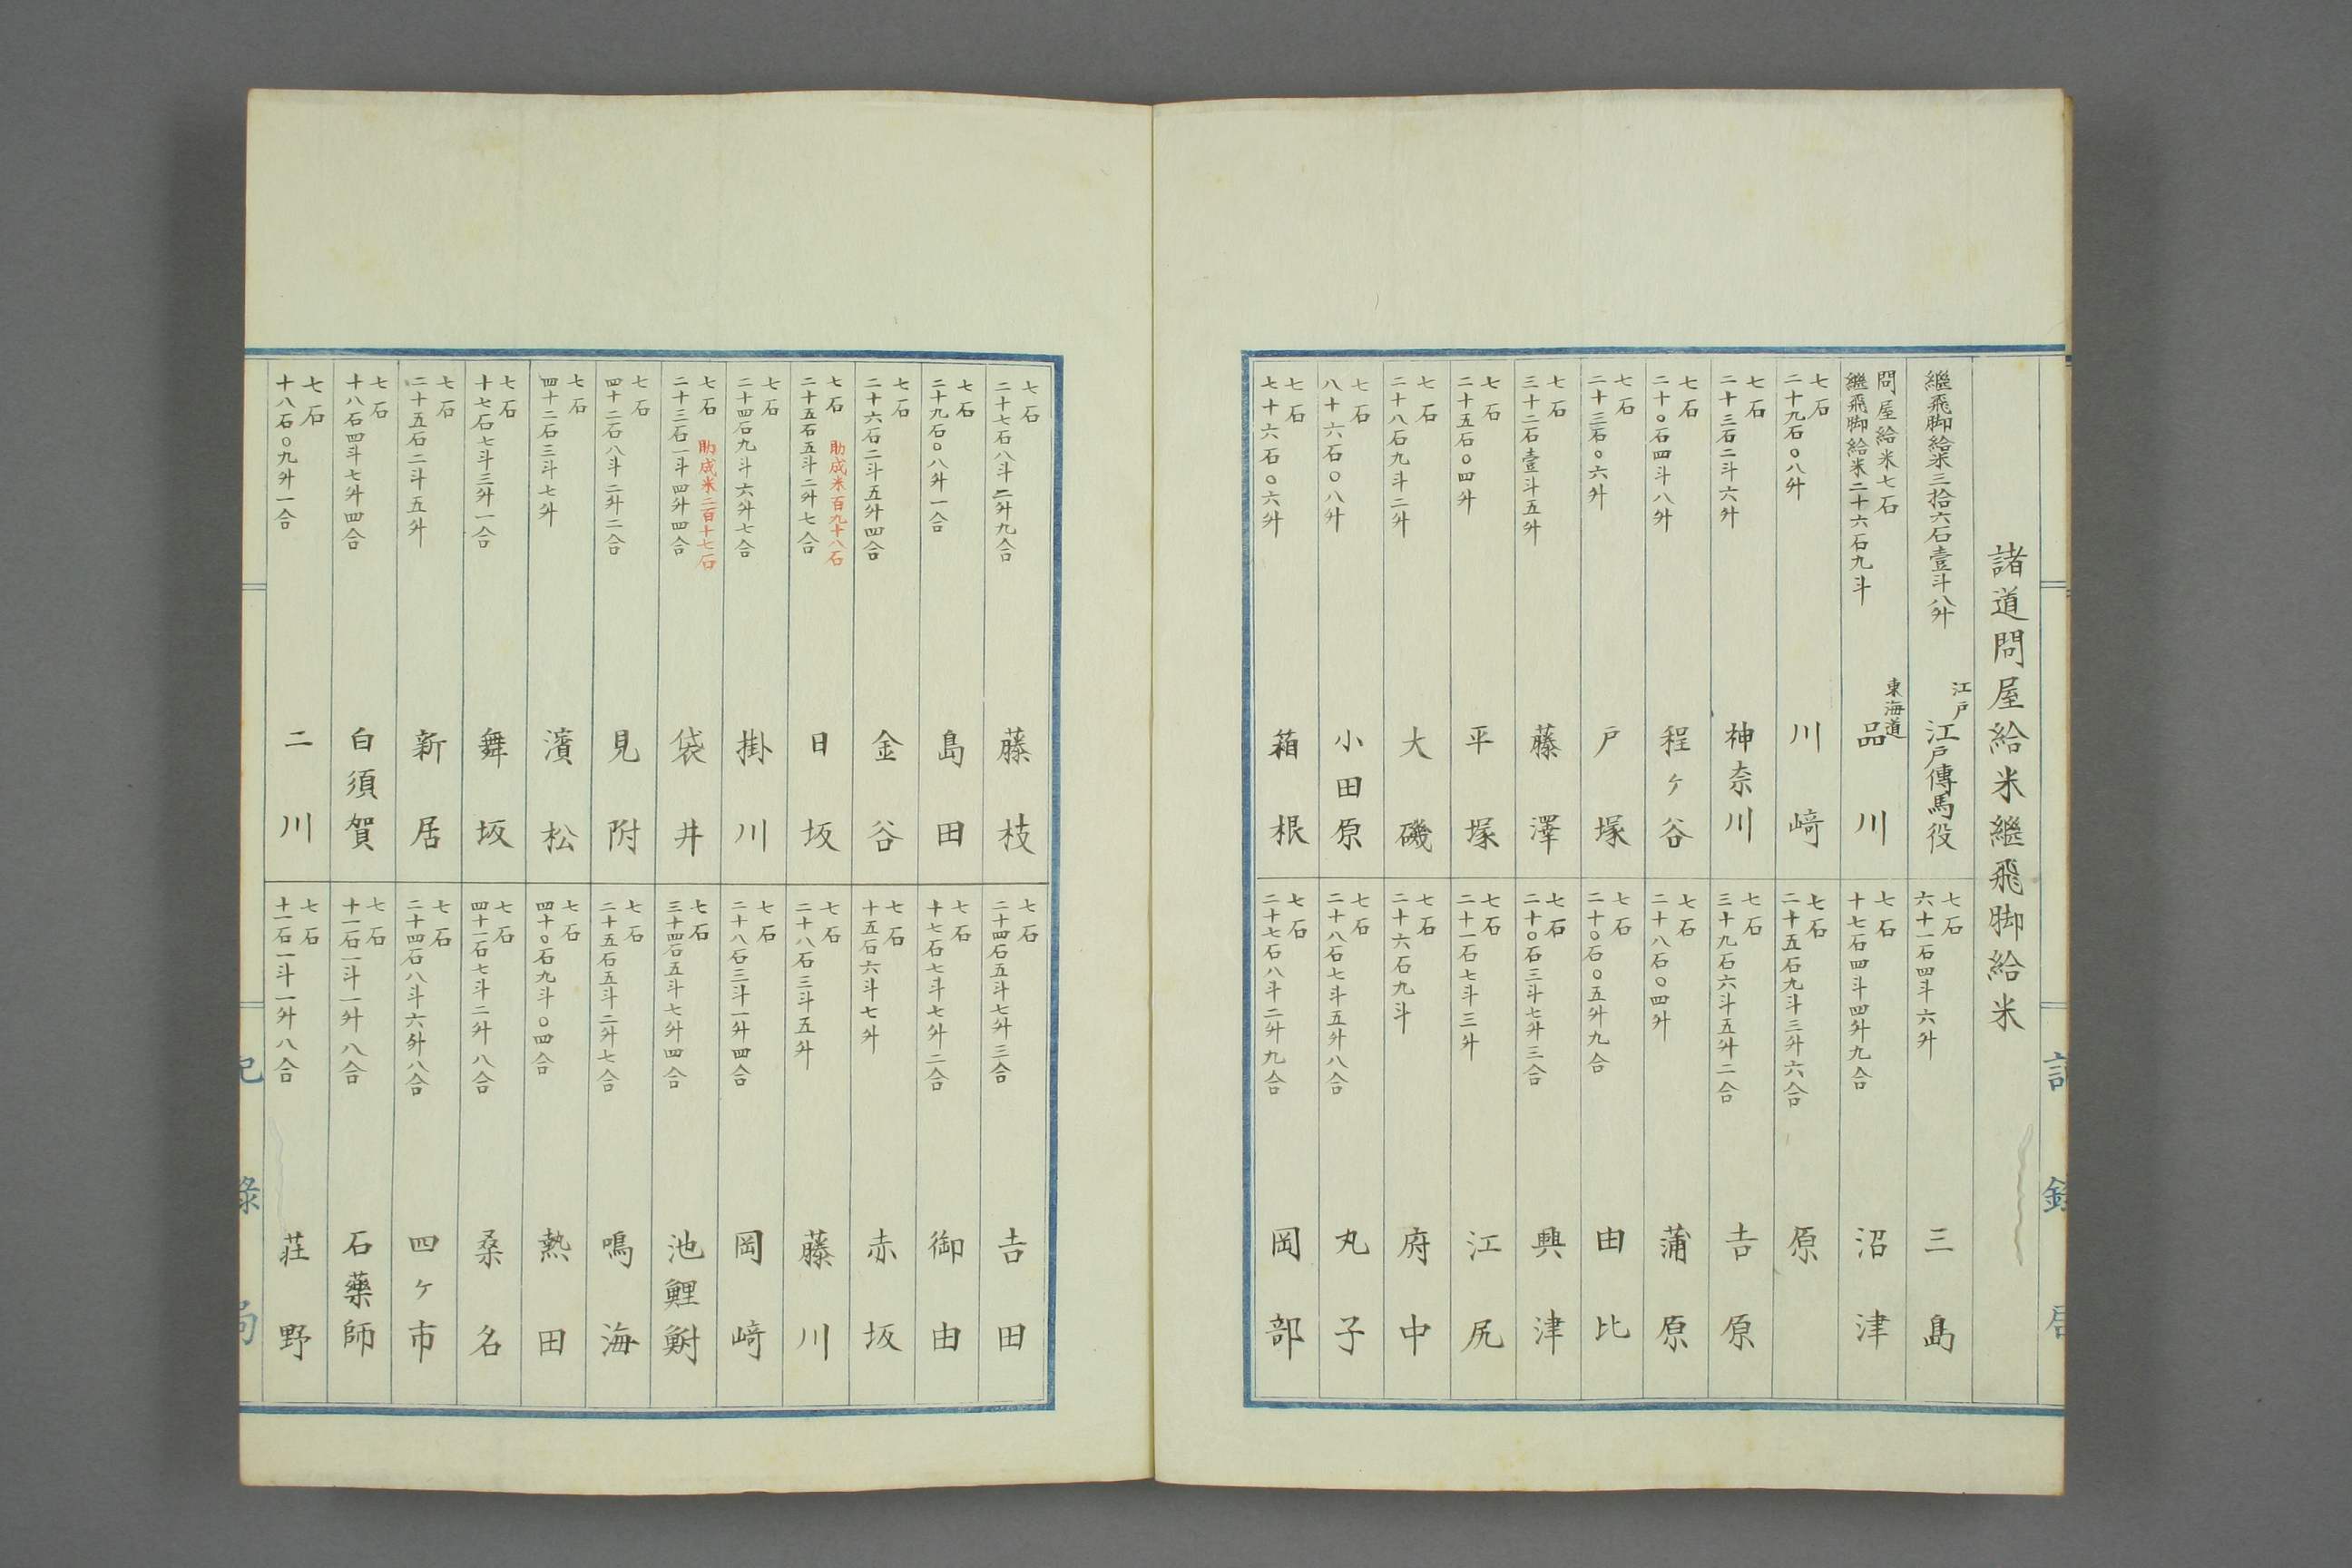 諸道問屋給米繼飛脚給米
繼飛脚給米三拾六石壹斗八舛
江戸
江戸傳馬役
問屋給米七石
繼飛脚給米二十六石九斗
東海道
品川
七石
二十九石〇八舛
川﨑
七石
二十三石二斗六舛
神奈川
七石
二十〇石四斗八舛
程ヶ谷
七石
二十三石〇六舛
戸塚
七石
三十二石壹斗五舛
藤澤
七石
二十五石〇四舛
平塚
七石
二十八石九斗二舛
大磯
七石
八十六石〇八舛
小田原
七石
七十六石〇六舛
箱根
七石
六十一石四斗六舛
三島
七石
十七石四斗四舛九合
沼津
七石
二十五石九斗三舛六合
原
七石
三十九石六斗五舛二合
吉原
七石
二十八石〇四舛
蒲原
七石
二十〇石〇五舛九合
由比
七石
二十〇石三斗七舛三合
興津
七石
二十一石七斗三舛
江尻
七石
二十六石九斗
府中
七石
二十八石七斗五舛八合
丸子
七石
二十七石八斗二舛九合
岡部
七石
二十七石八斗二舛九合
藤枝
七石
二十九石〇八舛一合
島田
七石
二十六石二斗五舛四合
金谷
七石 助成米百九十八石
二十五石五斗二舛七合
日坂
七石
二十四石九斗六舛七合
掛川
七石 助成米二百十七石
二十三石一斗四舛四合
袋井
七石
四十二石八斗二舛二合
見附
七石
四十二石三斗七舛
濱松
七石
十七石七斗三舛一合
舞坂
七石
二十五石二斗五舛
新居
七石
十八石四斗七舛四合
白須賀
七石
十八石〇九舛一合
二川
七石
二十四石五斗七舛三合
吉田
七石
十七石七斗七舛二合
御由
七石
十五石六斗七舛
赤坂
七石
二十八石三斗五舛
藤川
七石
二十八石三斗一舛四合
岡﨑
七石
三十四石五斗七舛四合
池鯉鮒
七石
二十五石五斗二舛七合
鳴海
七石
四十〇石九斗〇四合
熱田
七石
四十一石七斗二舛八合
桑名
七石
二十四石八斗六舛八合
四ヶ市
七石
十一石一斗一舛八合
石藥師
七石
十一石一斗一舛八合
荘野